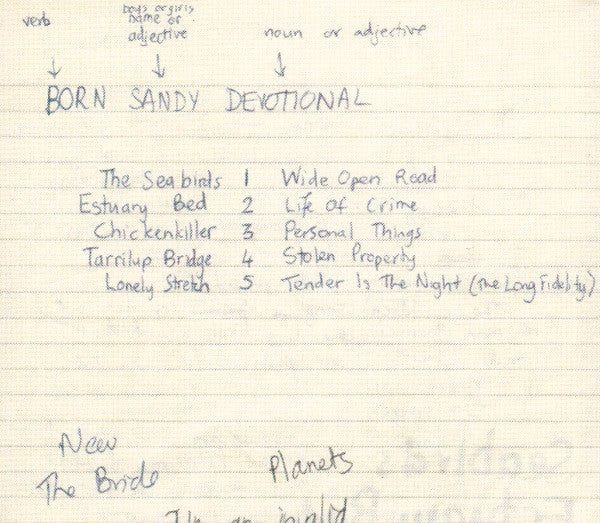 verb
boys or girls
name or
adjective
noun or adjective
BORN SANDY DEVOTIONAL
The Seabirds 1 Wide Open Road
Estuary Bed 2 Life of Crime
Chickenkiller 3 Personal Things
Tarrilup Bridge 4 Stolen Property
Lonely Stretch 5 Tender Is The Night (The Long Fidelity)
New
The Bride
Planets
an invalid
Seabirds